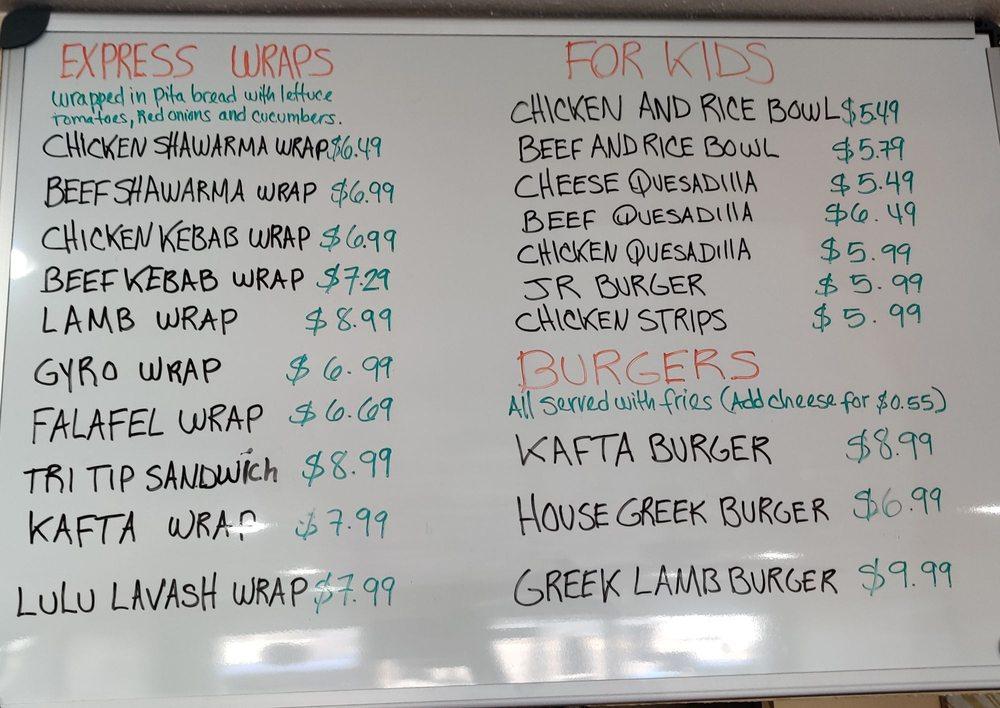 EXPRESS WRAPS
wrapped in Pita bread with lettuce
tomatoes, Red onions and cucumbers.
CHICKEN SHAWARMA WRAP $6.49
BEEF SHAWARMA WRAP $6.99
CHICKEN KEBAB WRAP $6.99
BEEF KEBAB WRAP $7.29
LAMB WRAP $8.99
GYRO WRAP $6.99
FALAFEL WRAP $6.69
TRI TIP SANDWich $8.99
KAFTA WRAP $7.99
LULU LAVASH WRAP $7.99
FOR KIDS
CHICKEN AND RICE BOWL $5.49
BEEF AND RICE BOWL $5.79
CHEESE QUESADIllA $5.49
BEEF QUESADIllA $6.49
CHICKEN QUESADIllA $5.99
JR BURGER $5.99
CHICKEN STRIPS $5.99
BURGERS
All served with fries (Add cheese for $0.55)
KAFTA BURGER $8.99
HOUSE GREEK BURGER $6.99
GREEK LAMB BURGER $9.99